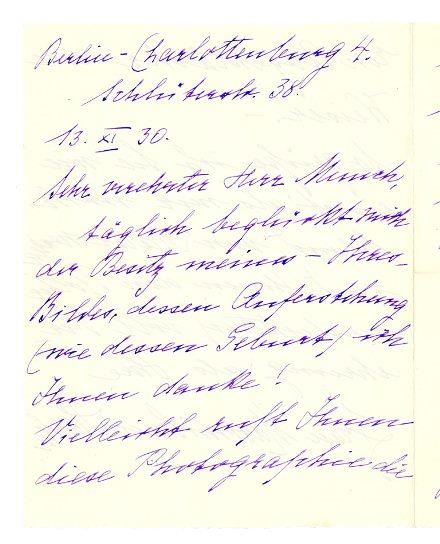 Berlin-Charlottenburg 4.
Schlüterstr. 38.
13. XI 30.
Sehr verehrter Herr Munch,
täglich beglückt mich
der Besitz meines - Ihres -
Bildes, dessen Auferstehung
(wie dessen Geburt) ich
Ihnen danke!
Vielleicht ruft Ihnen
diese Photographie die